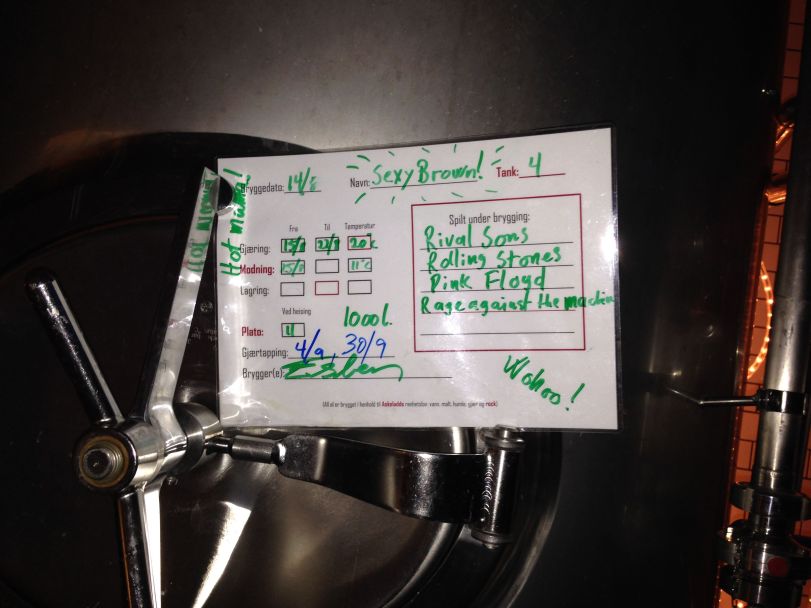 Bryggedato: 14/8 Navn: Sexy Brown! Tank: 4
Hot mama!
Fra Til Temperatur
Gjæring: 15/8 22/8 20°c
Modning: 25/8 11°c
Lagring:
Ved heising
Plato: 11 1000l.
Gjærtapping: 4/9, 30/9
Brygger(e):
Spilt under brygging:
Rival Sons
Rolling Stones
Pink Floyd
Rage against the machine
Wohoo!
(Alt øl er brygget i henhold til Askeladds renhetslov: vann, malt, humle, gjær og rock)